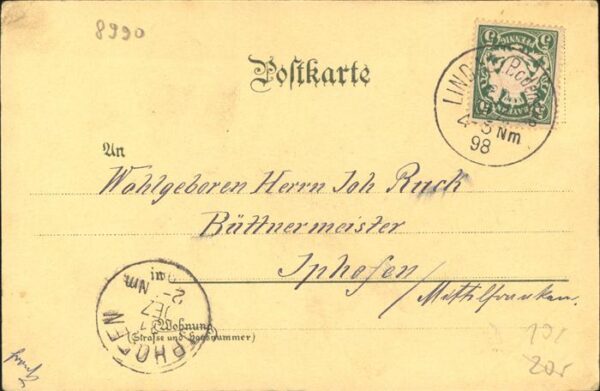 8990
Postkarte
5 PFENNIG 5
LINDAU
4-5 Nm
98
An
Wohlgeboren Herrn Joh Ruck
Büttnermeister
Iphofen
Mittelfranken.
IPHOFEN
Nm
Wohnung
(Straße und Hausnummer)
20